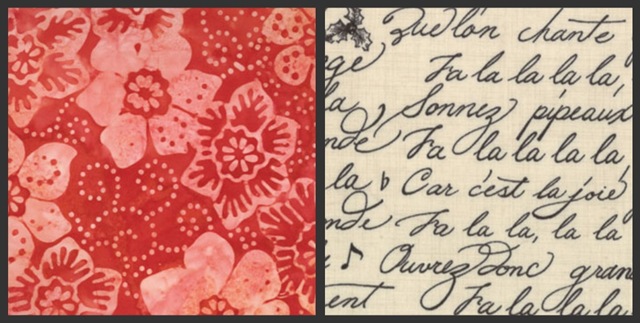 Que l'on chante
ge Fa la la la la,
la, Sonnez pipeaux
nde Fa la la la la,
la Car c'est la joie
nde Fa la la, la la
Ouvrez Donc gran
ent Fa la la la